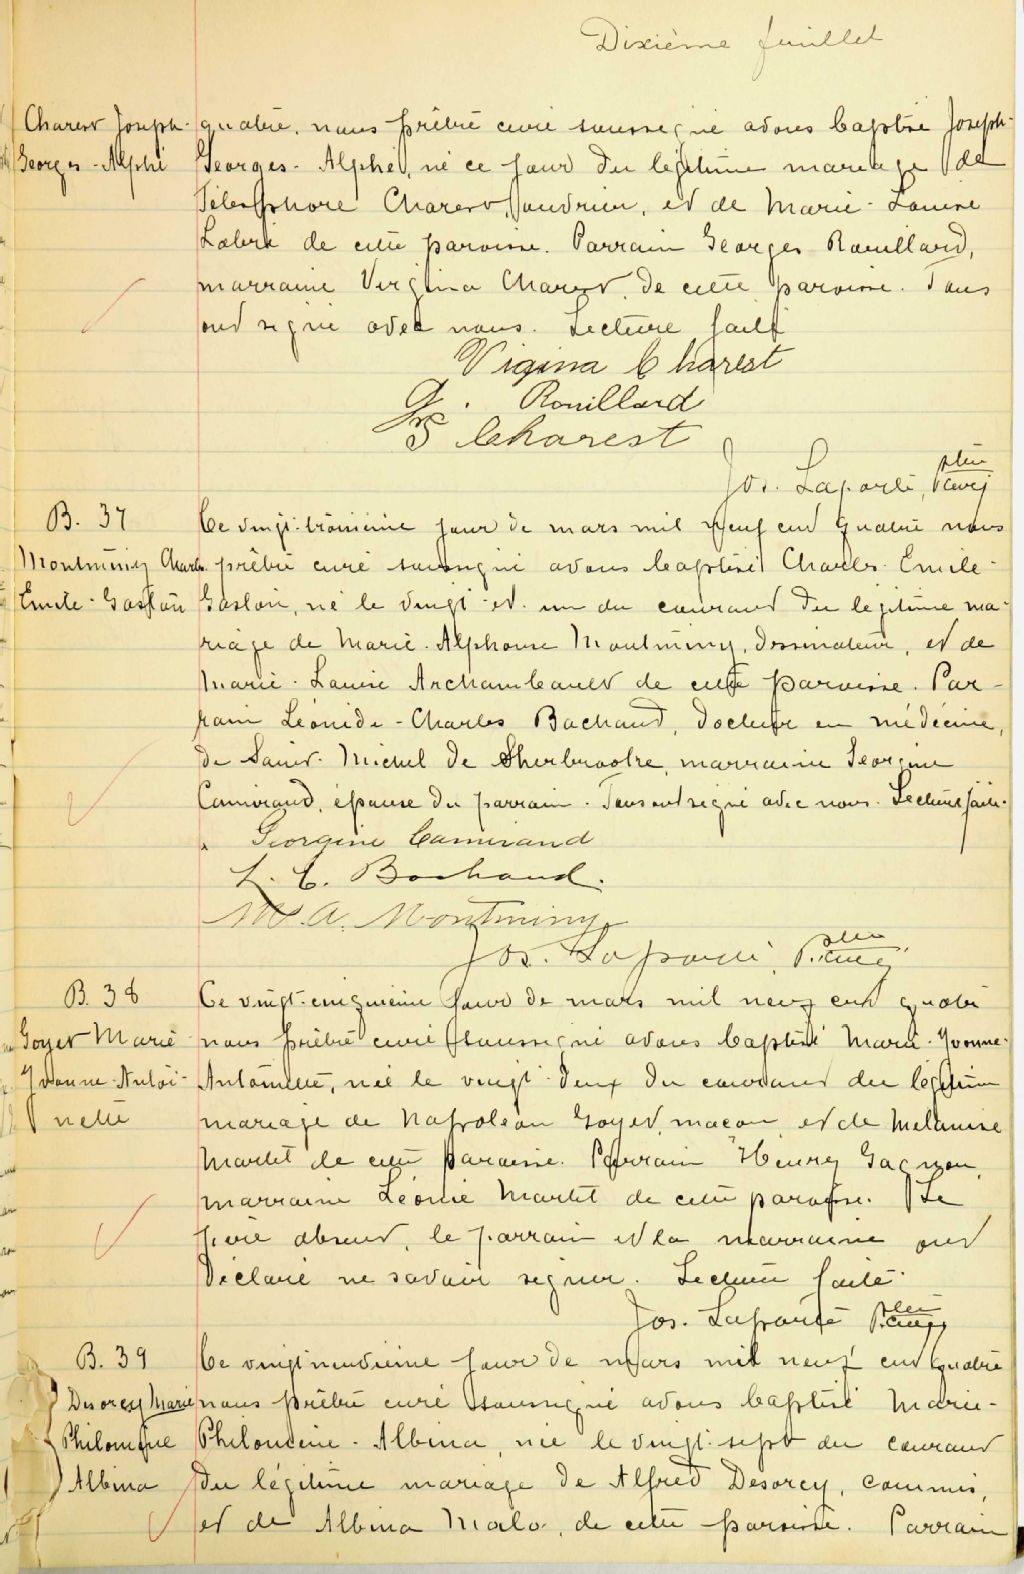 Dixième feuillet
Charest Joseph-
Georges-Alphé
quatre, nous prêtre curé soussigné avons baptisé Joseph-
Georges-Alphé, né ce jour du légitime mariage de
Télesphore Charest, ouvrier, et de Marie-Louise
Labré de cette paroisse. Parrain Georges Rouillard,
marraine Virgina Charest, de cette paroisse. Tous
ont signé avec nous. Lecture faite
Vigina Charest
G. Rouillard
Charest
Jos. Laporte, Ptre Curé
B. 37
Montminy Charles
Emile-Gaston
Ce vingt-troisième jour de mars mil neuf cent quatre nous
prêtre curé soussigné avons baptisé Charles-Emile-
Gaston, né le vingt-et-un du courant du légitime ma-
riage de Marie-Alphonse Montminy, dessinateur, et de
Marie-Louise Archambault de cette paroisse. Par-
rain Léonide-Charles Bachand, docteur en médecine,
de Saint-Michel de Sherbrooke, marraine Georgine
Camirand, épouse du parrain. Tous ont signé avec nous. Lecture faite.
Georgine Camirand
L. C. Bachand.
M. A. Montminy
Jos. Laporte, Ptre Curé
B. 38
Goyet Marie
Yvonne-Antoi-
nette
Ce vingt-cinquième jour de mars mil neuf cent quatre
nous prêtre curé soussigné avons baptisé Marie-Yvonne-
Antoinette, née le vingt-deux du courant du légitime
mariage de Napoléon Goyet, maçon, et de Melanise
Martel de cette paroisse. Parrain Henry Gagnon,
marraine Léonie Martel de cette paroisse. Le
père absent, le parrain et la marraine ont
déclaré ne savoir signer. Lecture faite.
Jos. Laporte Ptre Curé
B. 39
Desorcy Marie
Philomène
Albina
Ce vingt-neuvième jour de mars mil neuf cent quatre
nous prêtre curé soussigné avons baptisé Marie-
Philomène-Albina, née le vingt-sept du courant
du légitime mariage de Alfred Desorcy, commis,
et de Albina Malo, de cette paroisse. Parrain